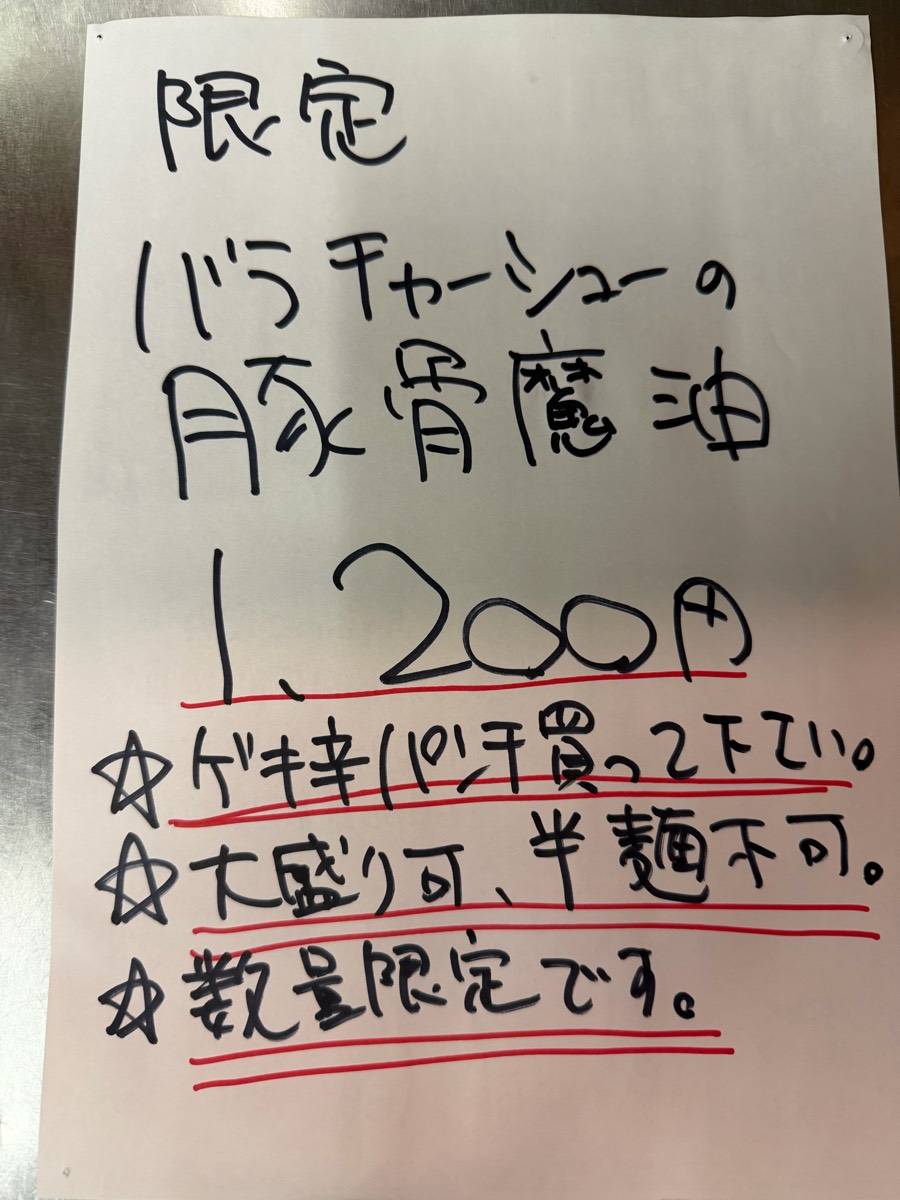 限定
バラチャーシューの
豚骨魔油
1、200円
☆ゲキ辛パン汗買って下てい。
☆大盛り可、半麺不可。
☆数量限定です。